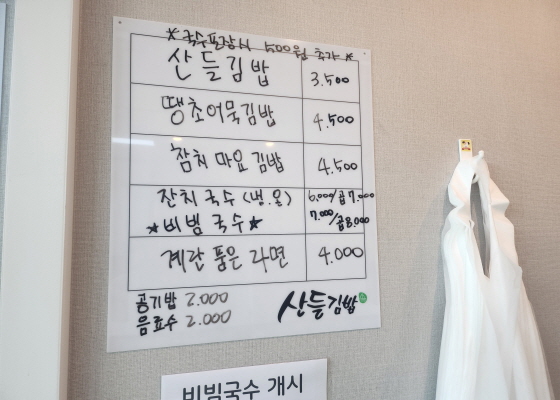 *국수포장시 500원 추가*
산들김밥 3.500
땡초어묵김밥 4.500
참치 마요 김밥 4.500
잔치 국수 (냉.온) 6.000/곱7.000
*비빔 국수* 7.000/곱8.000
계란 품은 라면 4.000
공기밥 2.000
음료수 2.000
산들김밥
비빔국수 개시